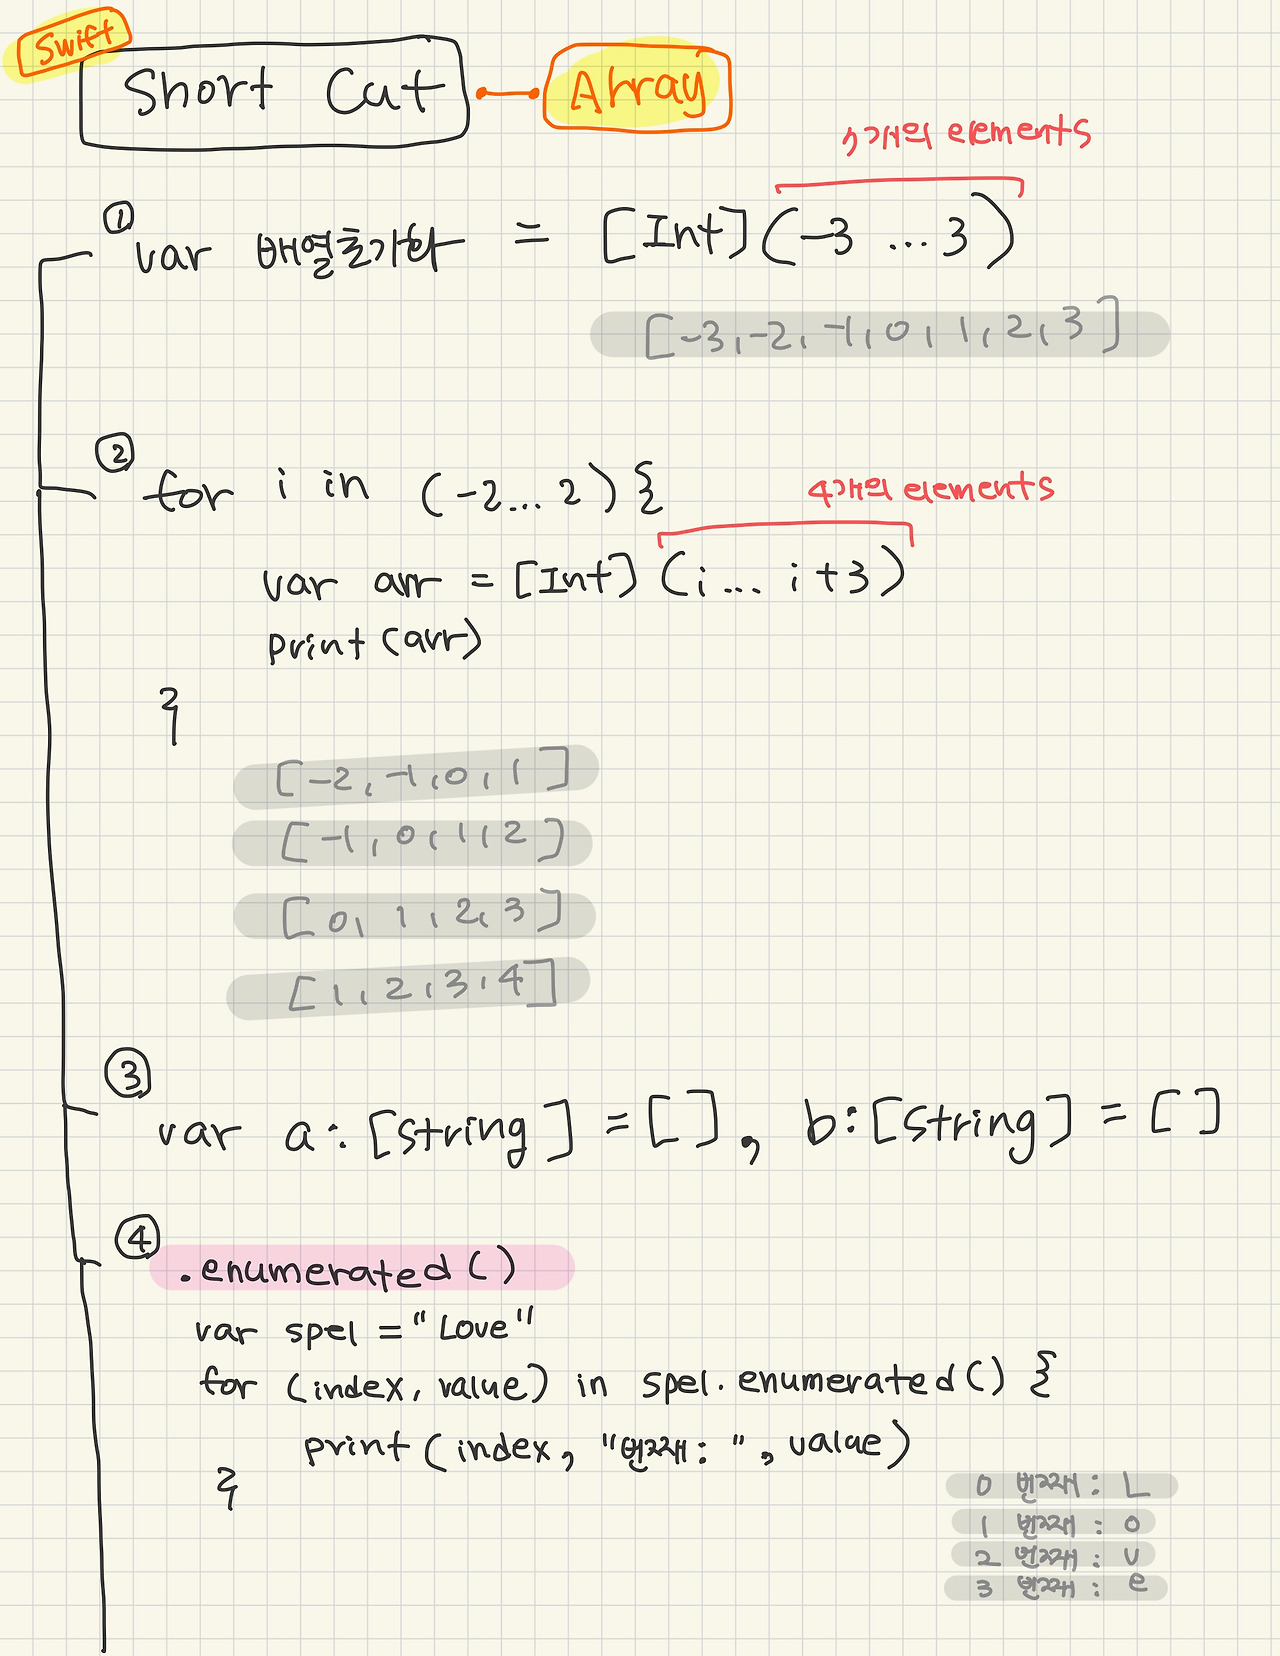 Swift
Short Cut
Array
7개의 elements
① var 배열초기화 = [Int](-3 ... 3)
[-3, -2, -1, 0, 1, 2, 3]
② for i in (-2... 2) {
4개의 elements
var arr = [Int] (i... i+3)
print (arr)
}
[-2, -1, 0, 1]
[-1, 0, 1, 2]
[0, 1, 2, 3]
[1, 2, 3, 4]
③
var a: [string] = [], b: [string] = []
④
.enumerated()
var spel = "Love"
for (index, value) in spel.enumerated() {
print (index, "번째: ", value)
}
0 번째 : L
1 번째 : o
2 번째 : v
3 번째 : e